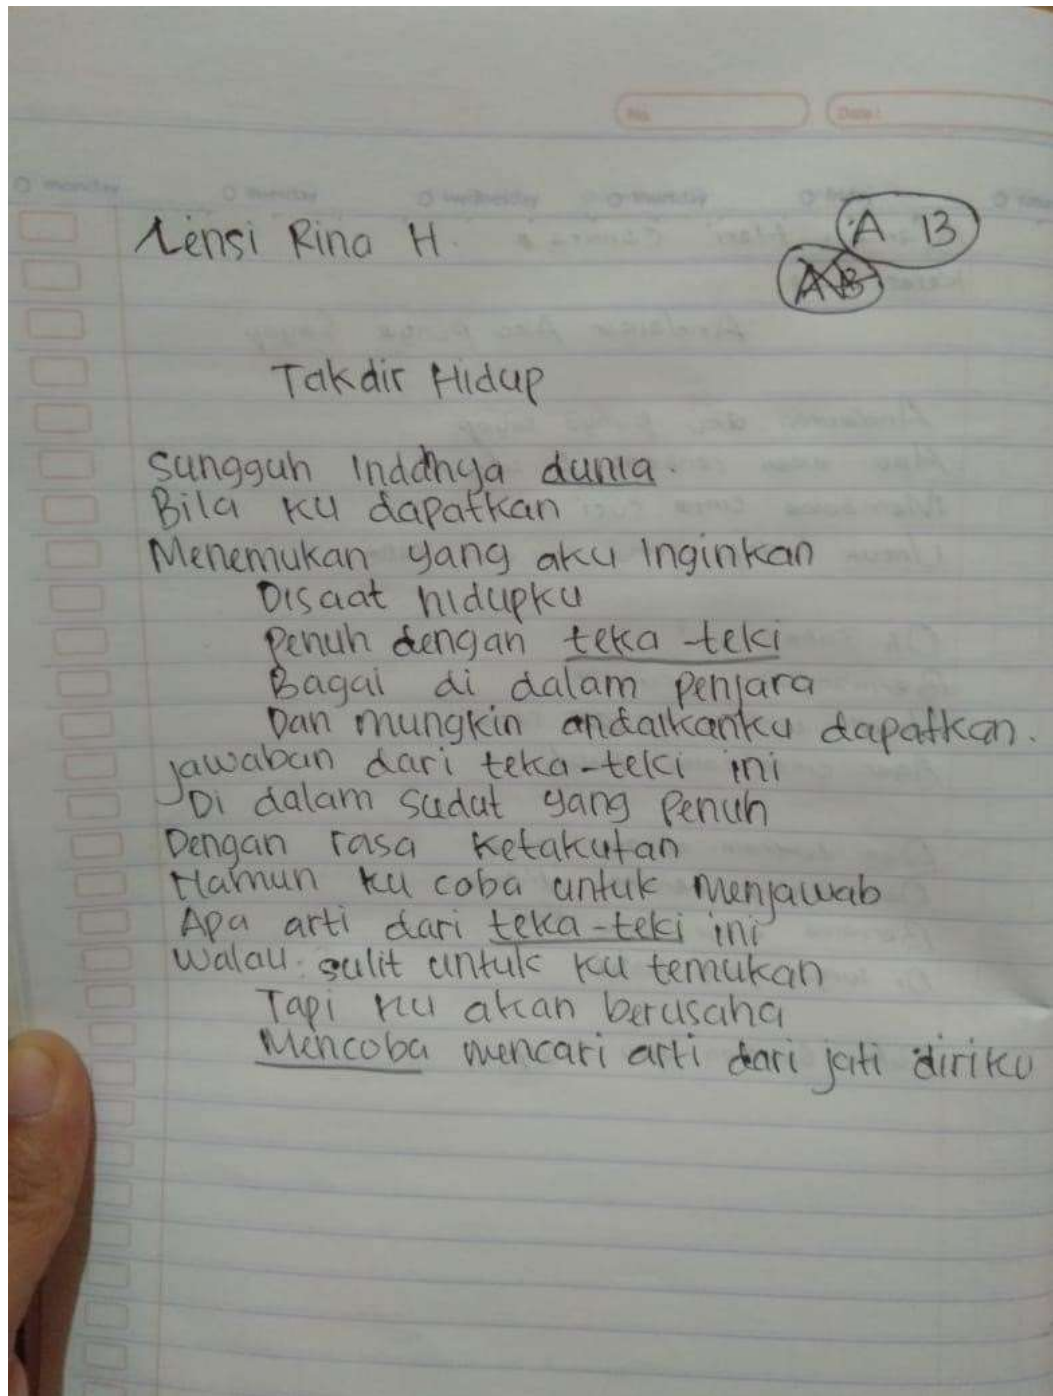 No.
Date:
Lensi Rina H.
A 13
AB
Takdir Hidup
Sungguh Inddhnya dunia.
Bila ku dapatkan
Menemukan yang aku Inginkan
Disaat hidupku
Penuh dengan teka-teki
Bagai di dalam penjara
Dan mungkin andaikanku dapatkan.
jawaban dari teka-teki ini
Di dalam sudut yang Penuh
Dengan rasa Ketakutan
Namun ku coba untuk Menjawab
Apa arti dari teka-teki ini
Walau sulit untuk ku temukan
Tapi ku akan berusaha
Mencoba mencari arti dari jati diriku